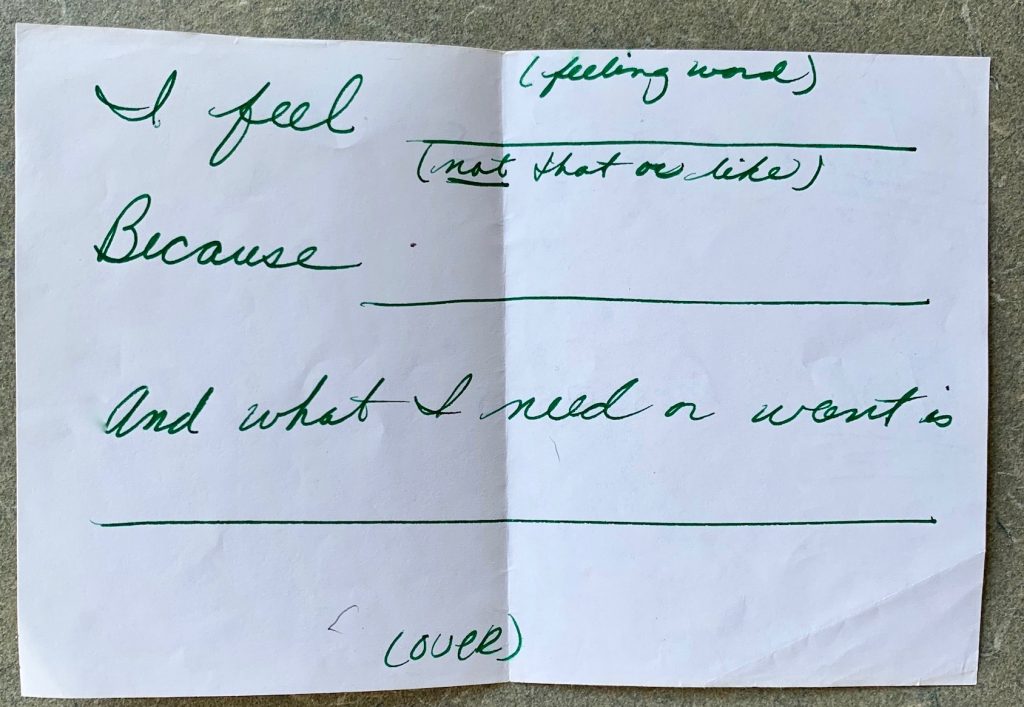 (feeling word)
I feel
(not that or like)
Because
And what I need or want is
(OVER)